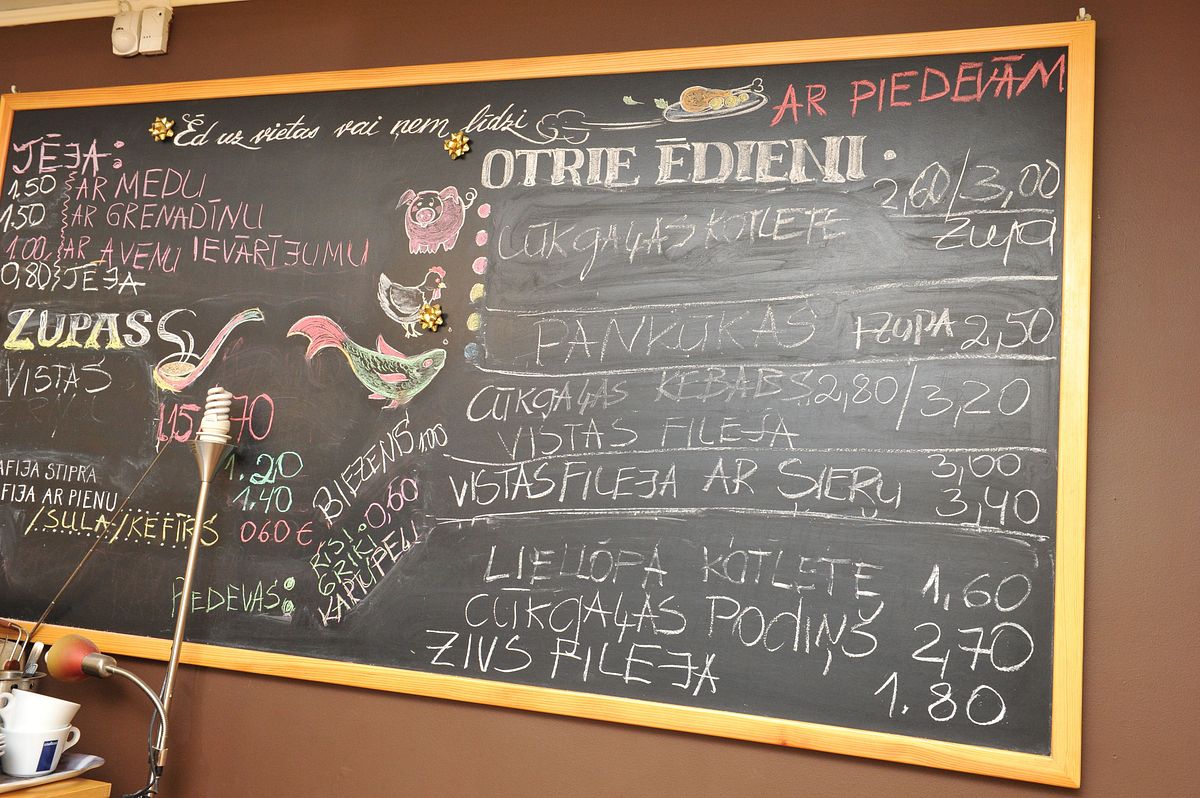 Ēd uz vietas vai ņem līdzi
AR PIEDEVĀM
TĒJA:
1.50 AR MEDU
1.50 AR GRENADĪNU
1.00 AR AVEŅU IEVĀRĪJUMU
0,80 TĒJA
ZUPAS
VISTAS
AFIJA STIPRA
1.20
FIJA AR PIENU
1.40
/SULA/KEFĪRS 060 €
PIEDEVAS:
BIEZENIS 1.00
RĪSI 0,60
GRIĶI
KARTUPEĻI
OTRIE ĒDIENI.
2,60/3,00
CŪKGAĻAS KOTLETE zupa
PANKŪKAS +ZUPA 2,50
CŪKGAĻAS KEBABS 2,80/3,20
VISTAS FILEJA
3,00
VISTAS FILEJA AR SIERU 3,40
LIELLOPA KOTLETE 1,60
CŪKGAĻAS PODIŅŠ 2,70
ZIVS FILEJA 1.80